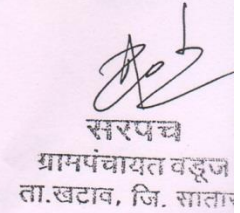 सरपंच
ग्रामपंचायत वडूज
ता.खटाव, जि. सातारा